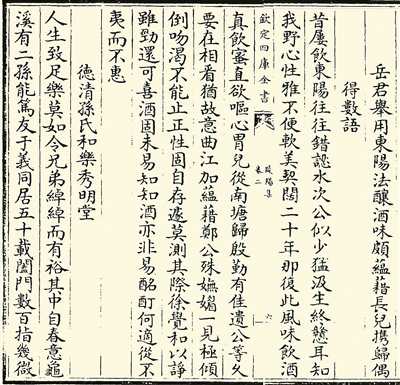 岳君舉用東陽法釀酒味頗蘊藉長兒攜歸偶
得數語
昔屢飲東陽往往錯認水次公似少猛汲生終戇耳知
我野心性雅不便軟美契闊二十年那復此風味飲酒
欽定四庫全書
陵陽集
卷二
六
真飲蜜直欲嘔心胃兒從南塘歸殷勤有佳遺公等久
要在相看猶故意曲江加蘊藉鄭公殊嫵媚一見極傾
倒吻渴不能止正性固自存遽莫測其際徐覺和以諍
雖勁還可喜酒固未易知知酒亦非易酩酊何適從不
夷而不惠
德清孫氏和樂秀明堂
人生致足樂莫如令兄弟綽綽而有裕其中自春意龜
溪有二孫能篤友于義同居五十載闔門數百指幾微